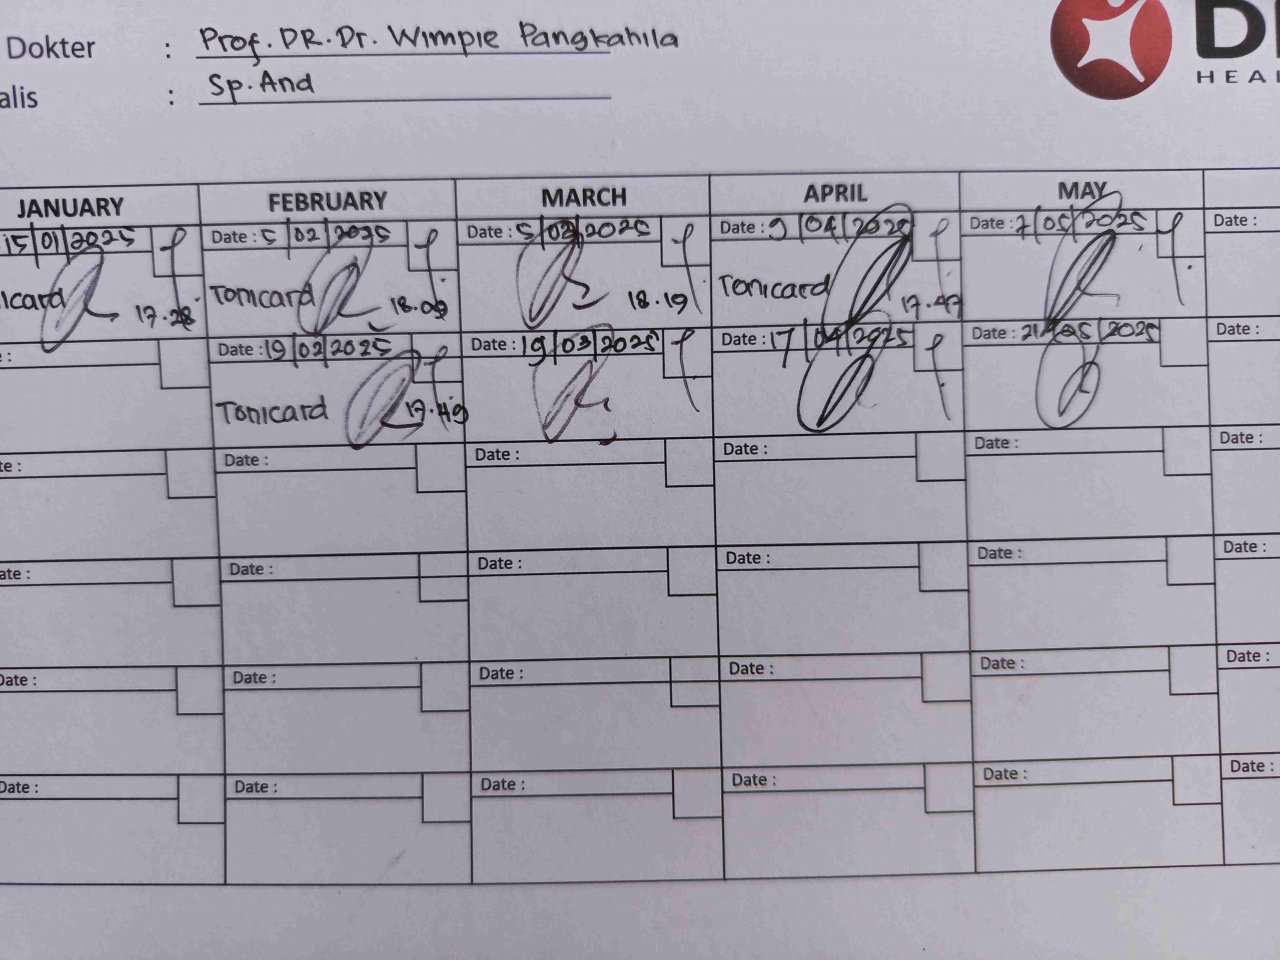 Dokter : Prof. DR. Dr. Wimpie Pangkahila
alis : Sp. And
HEAL
JANUARY FEBRUARY MARCH APRIL MAY
15|01|2025 Date : 5|02|2025 Date : 5|03|2025 Date : 9|04|2025 Date : 7|05|2025 Date :
icard 17.28 Tonicard 18.09 18.19 Tonicard 17.47
: Date : 19|02|2025 Date : 19|03|2025 Date : 17|04|2025 Date : 21|05|2025 Date :
Tonicard 17.49
te : Date : Date : Date : Date : Date :
ate : Date : Date : Date : Date : Date :
Date : Date : Date : Date : Date : Date :
Date : Date : Date : Date : Date : Date :